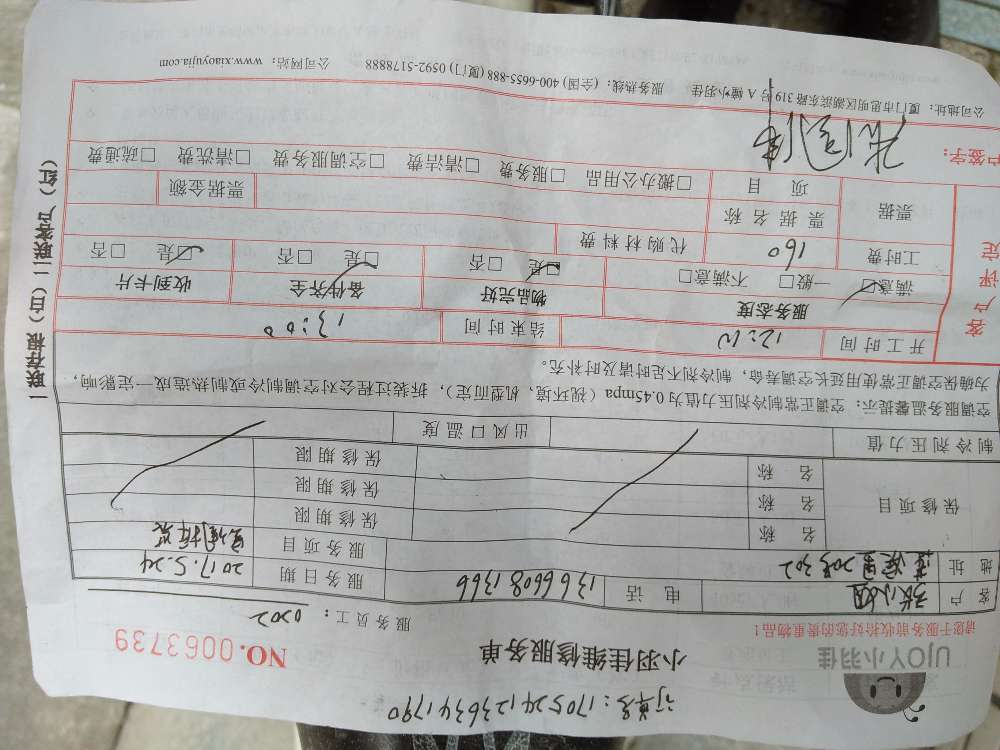 订单号：1705241236341790
UJOY小羽佳
小羽佳维修服务单
NO.0063739
请您于服务前收拾好您的贵重物品！
服务员工：0202
客户 张小姐 电话 13666081366 服务日期 2017.5.24
地址 莲花里20号302 服务项目 空调拆装
保修项目 名称 保修期限
名称 保修期限
名称 保修期限
制冷剂压力值 出风口温度
空调服务温馨提示：空调正常制冷剂压力值为0.45mpa（视环境，机型而定），拆装过程会对空调制冷或制热造成一定影响，
为确保空调正常使用延长空调寿命，制冷剂不足时请及时补充。
客户评定
开工时间 12:10 结束时间 13:00
服务态度 物品完好 备件齐全 收到卡片
满意□ 一般□ 不满意□ □是 □否 □是 □否 □是 □否
工时费 160 代购材料费
票据 票据名称 票据金额
项目 □搬办公用品 □服务费 □清洁费 □空调服务费 □清洗费 □疏通费
户签字：
公司地址：厦门市思明区湖滨东路319号A幢小羽佳 服务热线：(全国) 400-6655-888 (厦门) 0592-5178888 公司网站：www.xiaoyujia.com
一联存根（白）二联客户（红）